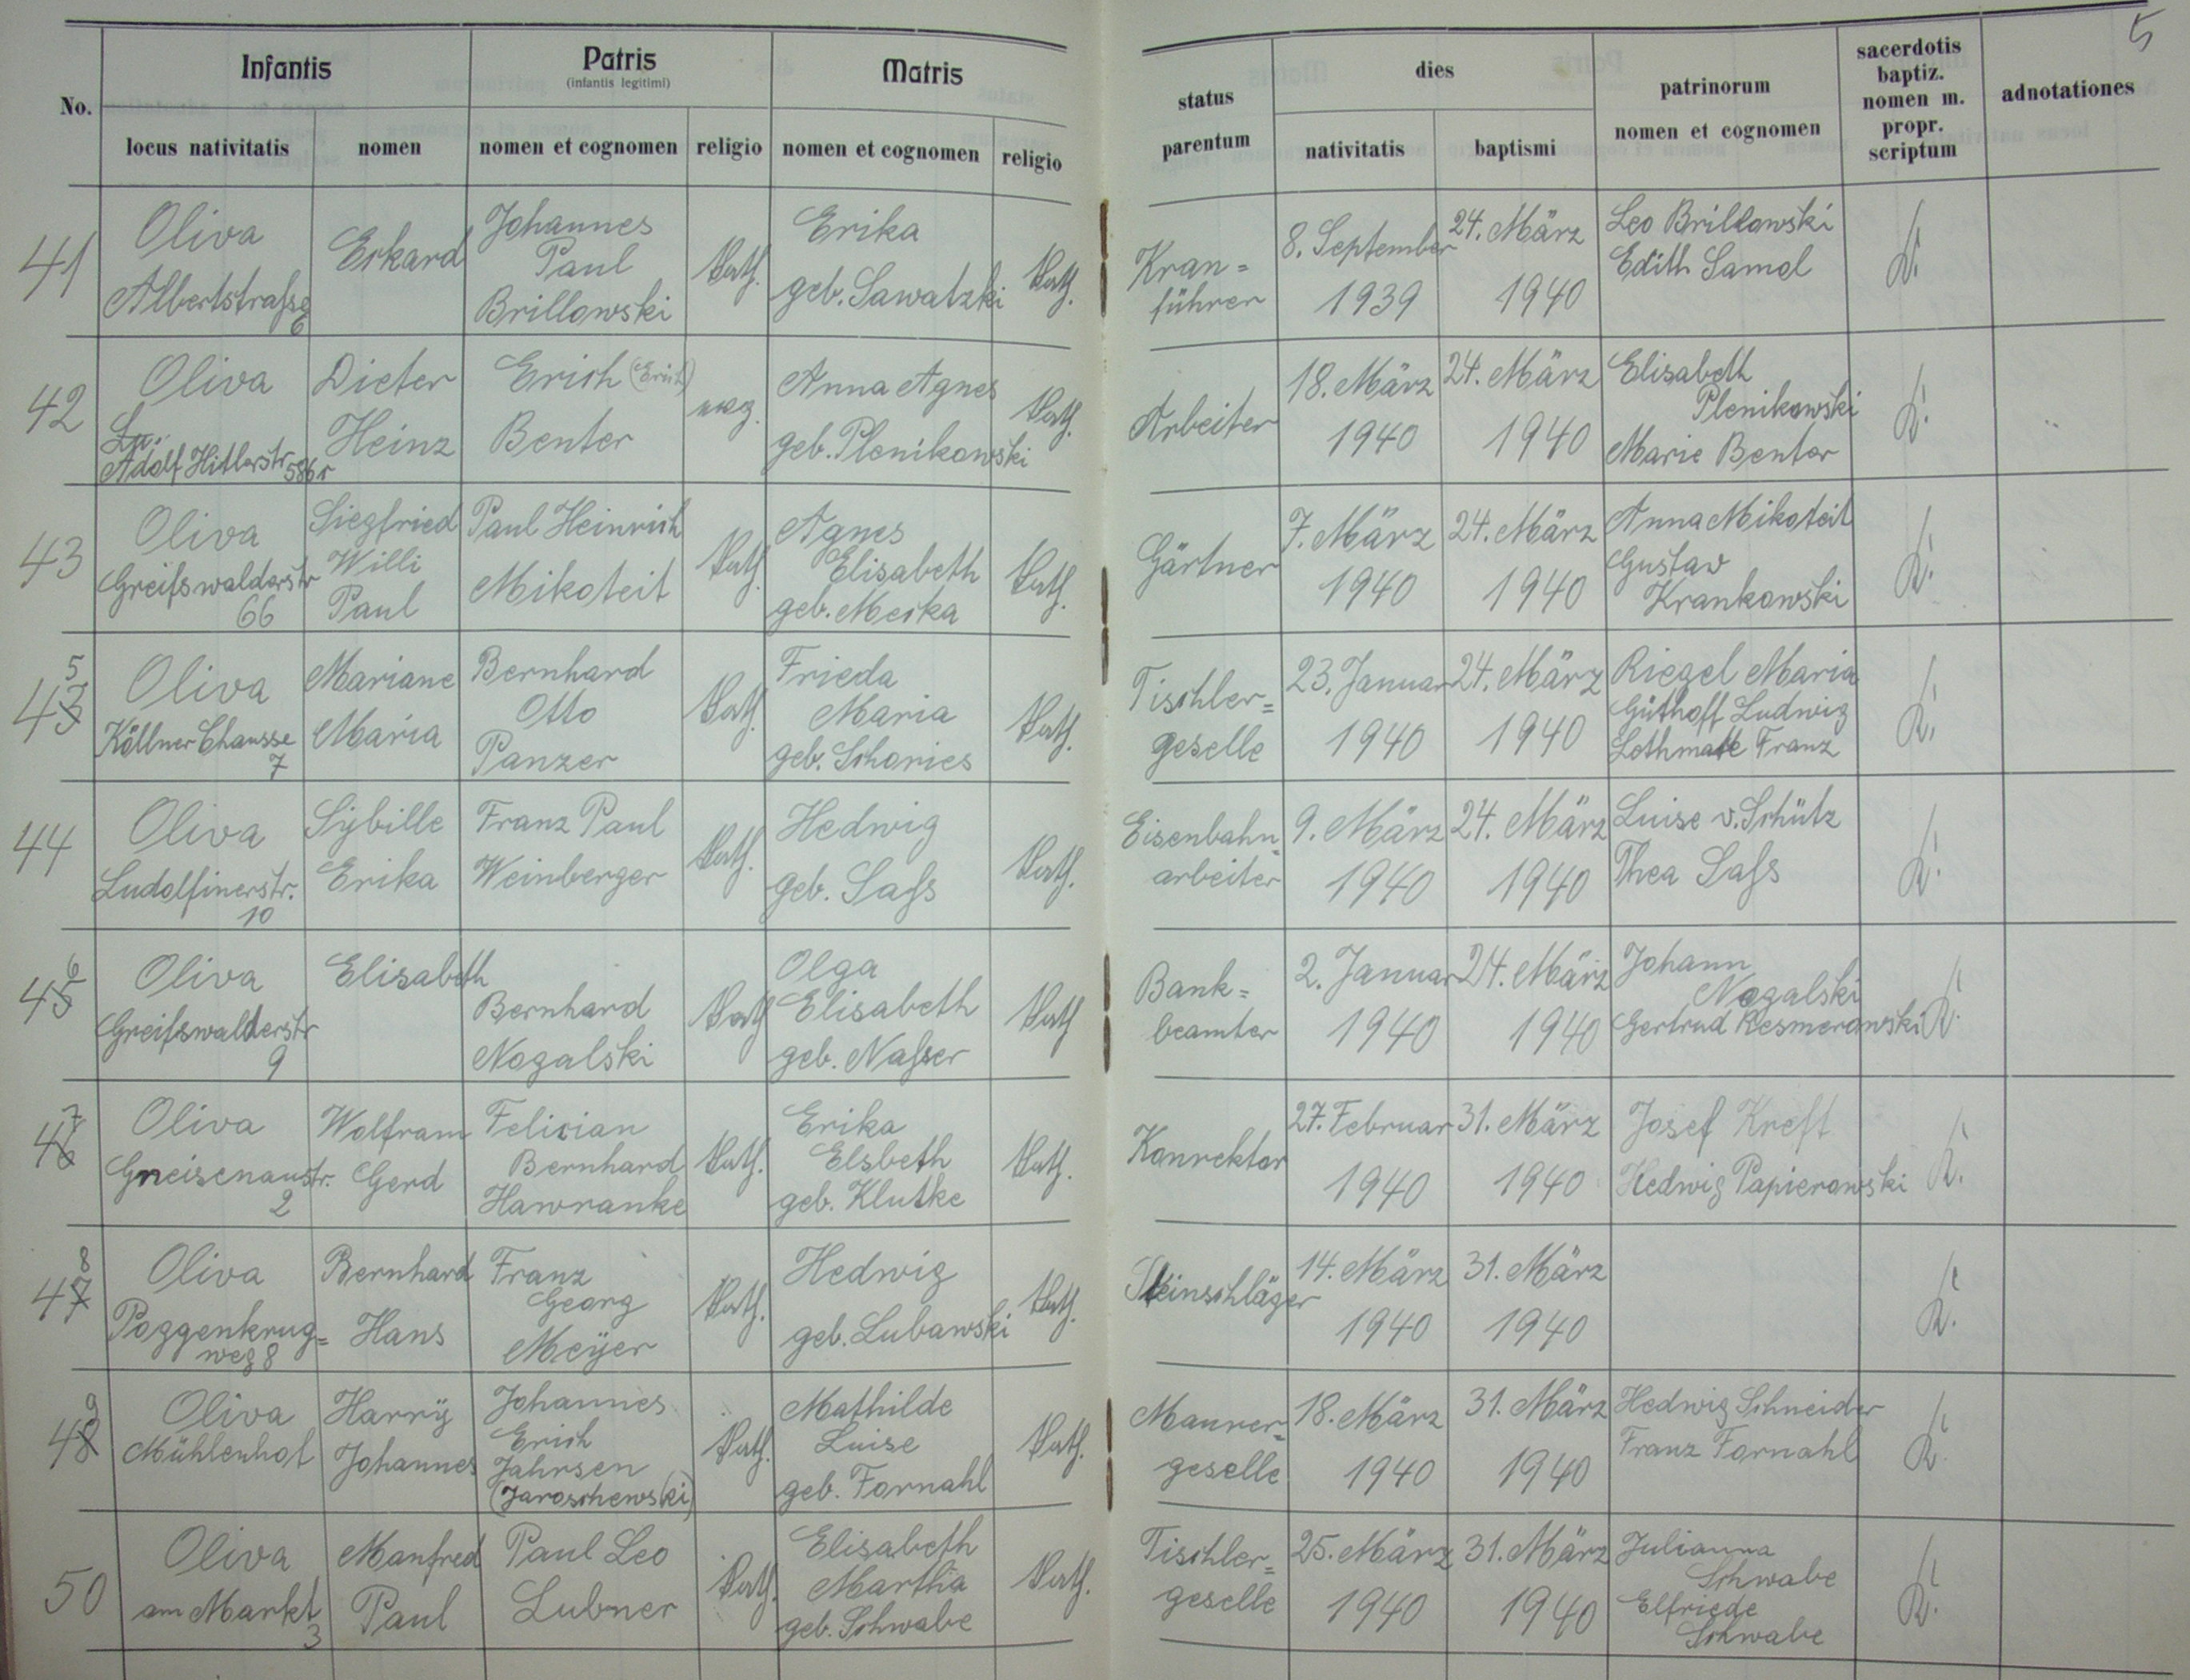 5
Infantis
Patris
(infantis legitimi)
Matris
status parentum
dies
patrinorum
nomen et cognomen
sacerdotis
baptiz.
nomen m.
propr.
scriptum
adnotationes
No.
locus nativitatis
nomen
nomen et cognomen
religio
nomen et cognomen
religio
nativitatis
baptismi
41
Oliva
Albertstraße
6
Erkard
Johannes
Paul
Brillowski
kath.
Erika
geb. Sawatzki
kath.
Kran=
führer
8. September
1939
24. März
1940
Leo Brillowski
Edith Samel
K.
42
Oliva
Adolf Hitlerstr. 586
Dieter
Heinz
Erich (Erich)
Benter
Anna Agnes
geb. Plenikowski
kath.
Arbeiter
18. März
1940
24. März
1940
Elisabeth
Plenikowski
Marie Benter
K.
43
Oliva
Greifswalderstr
66
Siegfried
Willi
Paul
Paul Heinrich
Mikoteit
kath.
Agnes
Elisabeth
geb. Meika
kath.
Gärtner
7. März
1940
24. März
1940
Anna Mikoteit
Gustav
Krankowski
K.
5
43
Oliva
Köllner Chausse
7
Mariane
Maria
Bernhard
Otto
Panzer
kath.
Frieda
Maria
geb. Schories
kath.
Tischler=
geselle
23. Januar
1940
24. März
1940
Riegel Maria
Güthoff Ludwig
Lothmatte Franz
K.
44
Oliva
Ludolfinerstr.
10
Sybille
Erika
Franz Paul
Weinberger
kath.
Hedwig
geb. Saß
kath.
Eisenbahn=
arbeiter
9. März
1940
24. März
1940
Luise v. Schütz
Thea Saß
K.
6
45
Oliva
Greifswalderstr
9
Elisabeth
Bernhard
Nogalski
kath
Olga
Elisabeth
geb. Naßer
kath
Bank=
beamter
2. Januar
1940
24. März
1940
Johann
Nogalski
Gertrud Resmerowski
K.
7
46
Oliva
Gneisenaustr.
2
Wolfram
Gerd
Felician
Bernhard
Hawranke
kath.
Erika
Elsbeth
geb. Klutke
kath.
Konrektor
27. Februar
1940
31. März
1940
Josef Kreft
Hedwig Papierowski
K.
8
47
Oliva
Poggenkrug=
weg 8
Bernhard
Hans
Franz
Georg
Meyer
kath.
Hedwig
geb. Lubawski
kath.
Steinschläger
14. März
1940
31. März
1940
K.
9
48
Oliva
Mühlenhof
Harry
Johannes
Johannes
Erich
Jahrsen
(Jaroschewski)
kath.
Mathilde
Luise
geb. Fornahl
kath.
Maurer=
geselle
18. März
1940
31. März
1940
Hedwig Schneider
Franz Fornahl
K.
50
Oliva
am Markt
3
Manfred
Paul
Paul Leo
Lubner
kath.
Elisabeth
Martha
geb. Schwabe
kath.
Tischler=
geselle
25. März
1940
31. März
1940
Julianna
Schwabe
Elfriede
Schwabe
K.